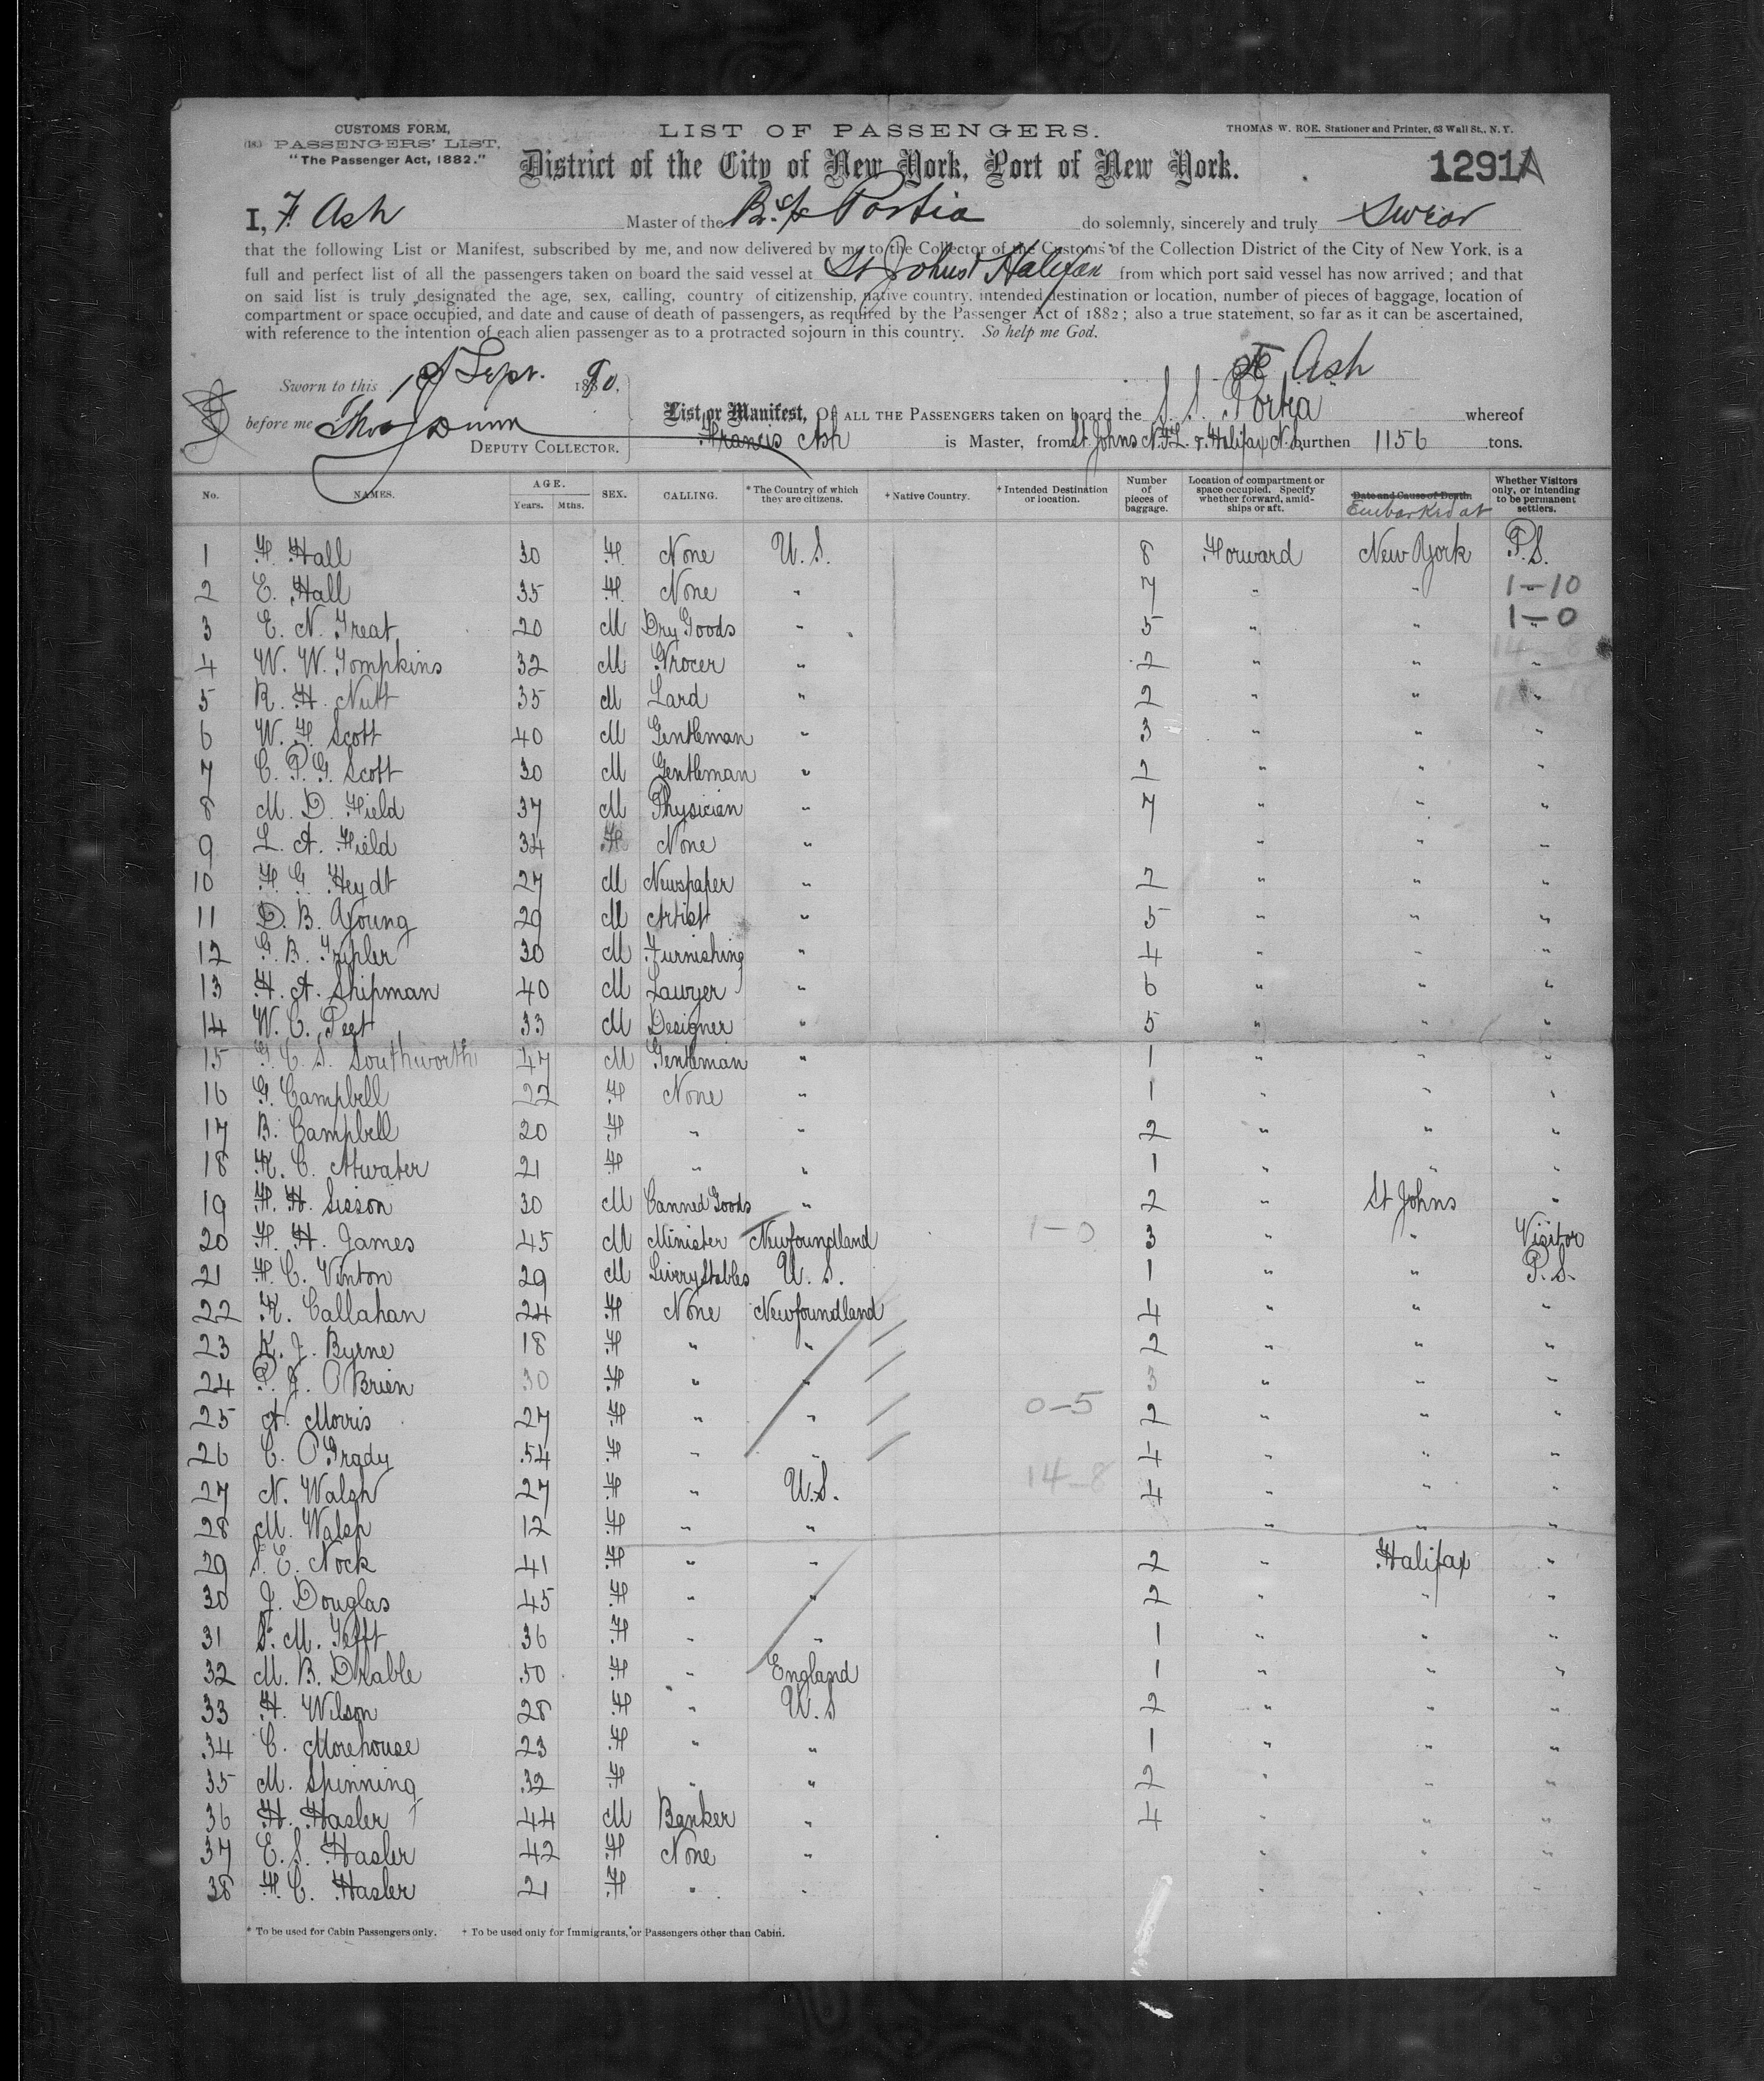 CUSTOMS FORM,
PASSENGERS' LIST,
"The Passenger Act, 1882."
LIST OF PASSENGERS.
THOMAS W. ROE, Stationer and Printer, 63 Wall St., N. Y.
District of the City of New York, Port of New York.
1291A
I, F. Ash Master of the Br. S/s Portia do solemnly, sincerely and truly Swear
that the following List or Manifest, subscribed by me, and now delivered by me to the Collector of the Customs of the Collection District of the City of New York, is a
full and perfect list of all the passengers taken on board the said vessel at St Johns & Halifax from which port said vessel has now arrived; and that
on said list is truly designated the age, sex, calling, country of citizenship, native country, intended destination or location, number of pieces of baggage, location of
compartment or space occupied, and date and cause of death of passengers, as required by the Passenger Act of 1882; also a true statement, so far as it can be ascertained,
with reference to the intention of each alien passenger as to a protracted sojourn in this country. So help me God.
F Ash
Sworn to this Sept. 1890.
before me Thos Dunn
DEPUTY COLLECTOR.
List or Manifest, OF ALL THE PASSENGERS taken on board the S. S. Portia whereof
Francis Ash is Master, from St Johns N.F.L. & Halifax N.S. burthen 1156 tons.
No. NAMES. AGE. Years. Mths. SEX. CALLING. *The Country of which they are citizens. †Native Country. †Intended Destination or location. Number of pieces of baggage. Location of compartment or space occupied. Specify whether forward, amidships or aft. Date and Cause of Death. Embarked at Whether Visitors only, or intending to be permanent settlers.
1 F. Hall 30 F. None U. S. 8 Forward New York P.S.
2 E. Hall 35 F. None " 7 " " 1-10
3 E. N. Treat 20 M Dry Goods " 5 " " 1-0
4 W. W. Tompkins 32 M Grocer " 2 " " "
5 R. H. Nutt 35 M Lard " 2 " " "
6 W. F. Scott 40 M Gentleman " 3 " " "
7 C. P. G. Scott 30 M Gentleman " 2 " " "
8 M. D. Field 37 M Physician " 7 " " "
9 L. A. Field 34 F None " " " "
10 F. G. Heydt 27 M Newspaper " 2 " " "
11 D. B. Young 29 M Artist " 5 " " "
12 G. B. Tripler 30 M Furnishing " 4 " " "
13 H. A. Shipman 40 M Lawyer " 6 " " "
14 W. C. Peet 33 M Designer " 5 " " "
15 G. C. S. Southworth 47 M Gentleman " 1 " " "
16 G. Campbell 22 F None " 1 " " "
17 B. Campbell 20 F " " 2 " " "
18 K. C. Atwater 21 F " " 1 " " "
19 F. H. Sisson 30 M Canned Goods " 2 " St Johns "
20 F. H. James 45 M Minister Newfoundland 1-0 3 " " Visitor
21 F. C. Vinton 29 M Livery Stables U. S. 1 " " P. S.
22 K. Callahan 24 F None Newfoundland 4 " " "
23 K. J. Byrne 18 F " " 2 " " "
24 P. J. OBrien 30 F " " 3 " " "
25 A. Morris 27 F " " 0-5 2 " " "
26 C. OGrady 54 F " " 4 " " "
27 N. Walsh 27 F " U.S. 14-8 4 " " "
28 M. Walsh 12 F " " " " "
29 S. E. Nock 41 F " " 2 " Halifax "
30 J. Douglas 45 F " " 2 " " "
31 S. M. Tefft 36 F " " 1 " " "
32 M. B. Drable 50 F " England 1 " " "
33 H. Wilson 28 F " U. S 2 " " "
34 C. Morehouse 23 F " " 1 " " "
35 M. Spinning 32 F " " 2 " " "
36 H. Hasler 44 M Banker " 4 " " "
37 E. S. Hasler 42 F None " " " "
38 F. C. Hasler 21 F " " " " "
* To be used for Cabin Passengers only. † To be used only for Immigrants, or Passengers other than Cabin.